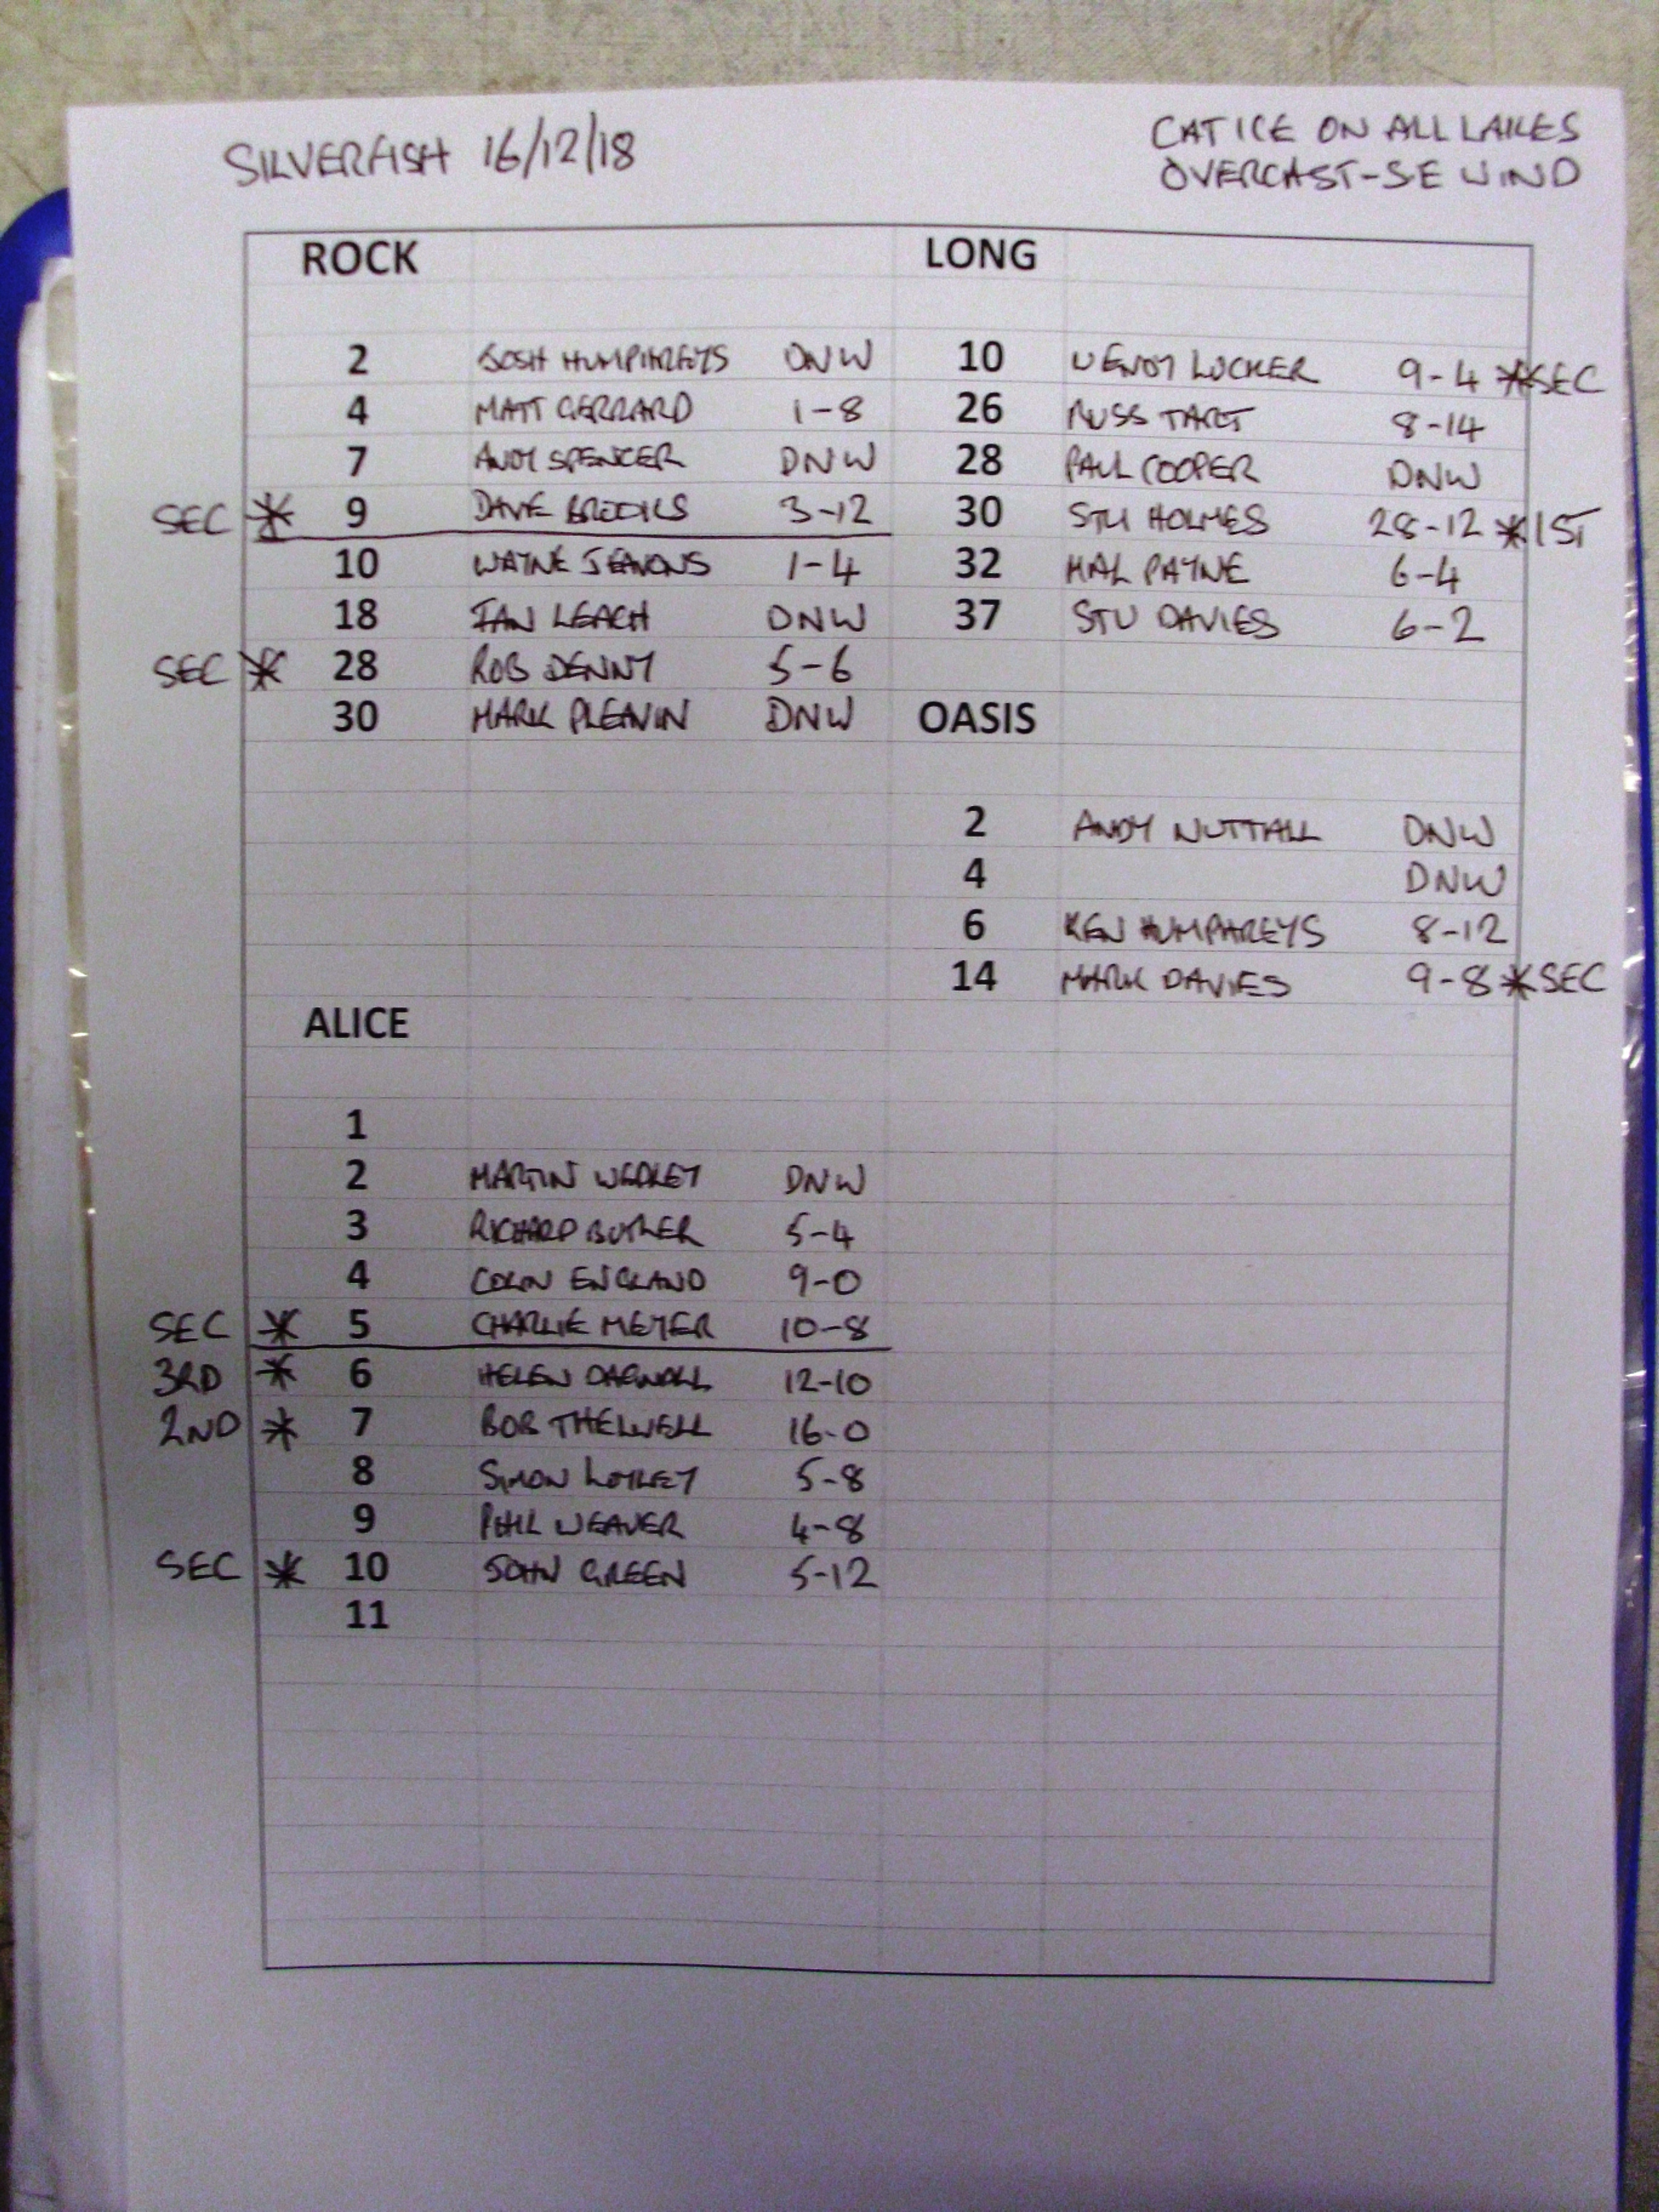 SILVERFISH 16/12/18
CAT ICE ON ALL LAKES
OVERCAST-SE WIND
ROCK
2 JOSH HUMPHREYS DNW
4 MATT GERRARD 1-8
7 ANDY SPENCER DNW
SEC * 9 DAVE BROOKS 3-12
10 WAYNE JEAVONS 1-4
18 IAN LEACH DNW
SEC * 28 ROB DENNY 5-6
30 MARK PLEAVIN DNW
LONG
10 WENDY LOCKER 9-4 *SEC
26 RUSS TART 8-14
28 PAUL COOPER DNW
30 STU HOLMES 28-12 *1ST
32 MAL PAYNE 6-4
37 STU DAVIES 6-2
OASIS
2 ANDY NUTTALL DNW
4 DNW
6 KEN HUMPHREYS 8-12
14 MARK DAVIES 9-8 *SEC
ALICE
1
2 MARTIN DNW
3 RICHARD BUTLER 5-4
4 COLIN ENGLAND 9-0
SEC * 5 CHARLIE MEYER 10-8
3RD * 6 HELEN DAGNALL 12-10
2ND * 7 BOB THELWELL 16-0
8 SIMON 5-8
9 PHIL WEAVER 4-8
SEC * 10 JOHN GREEN 5-12
11